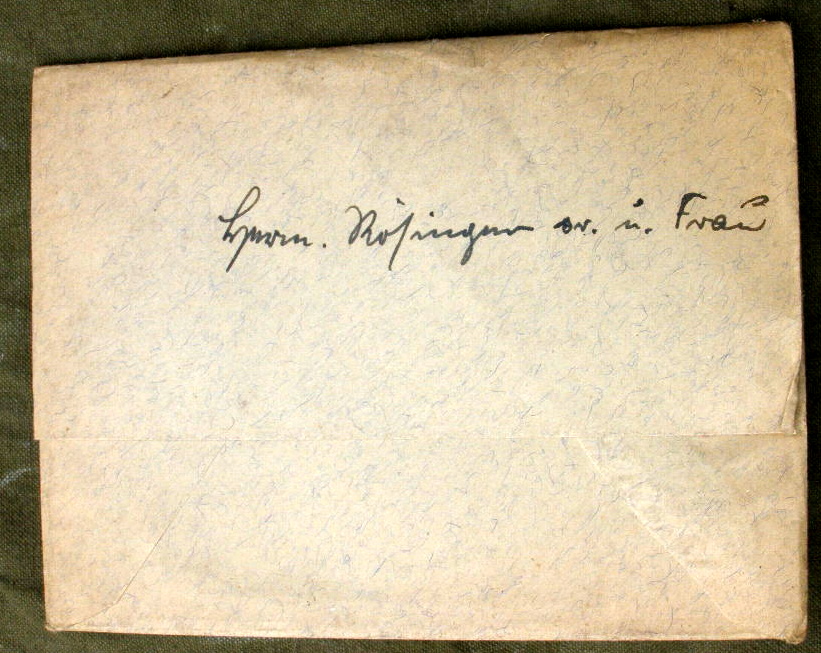 Herm. Rösinger sr. u. Frau